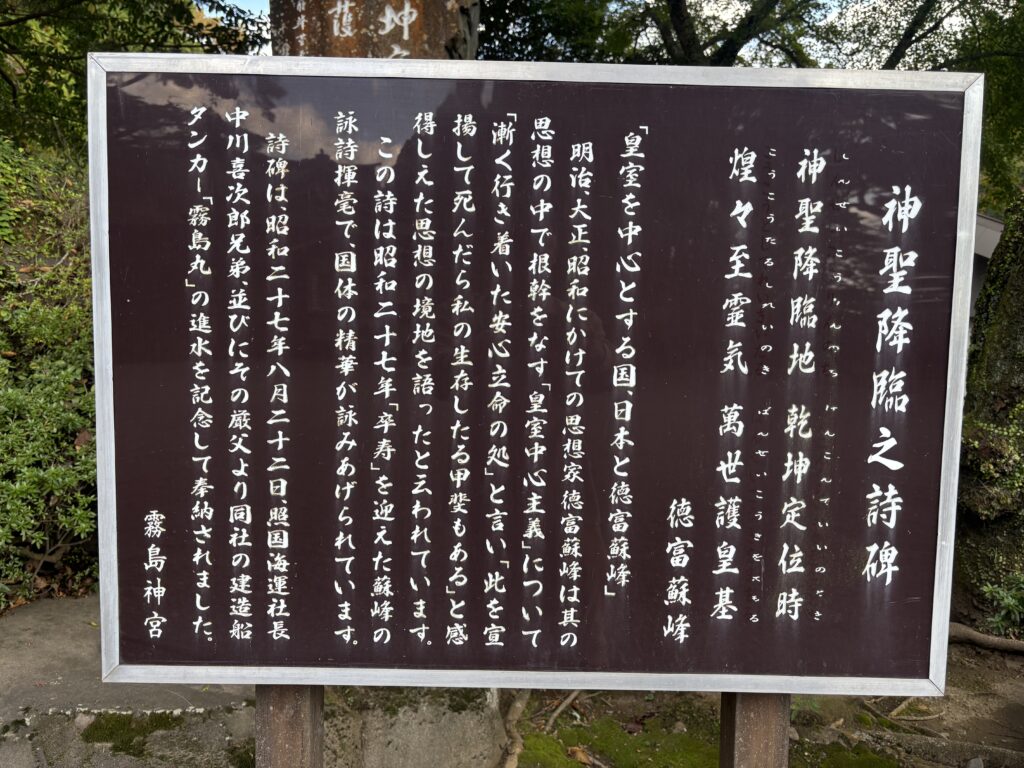 神聖降臨之詩碑
神聖降臨地 乾坤定位時
しんせいこうりんのち けんこんていいのとき
煌々至霊気 萬世護皇基
こうこうたるしれいのき ばんせいこうきをまもる
徳富蘇峰
「皇室を中心とする国、日本と徳富蘇峰」
明治、大正、昭和にかけての思想家徳富蘇峰は其の
思想の中で根幹をなす「皇室中心主義」について
「漸く行き着いた安心立命の処」と言い、「此を宣
揚して死んだら私の生存したる甲斐もある」と感
得しえた思想の境地を語ったと云われています。
この詩は昭和二十七年「卒寿」を迎えた蘇峰の
詠詩揮毫で、国体の精華が詠みあげられています。
詩碑は昭和二十七年八月二十二日、照国海運社長
中川喜次郎兄弟、並びにその厳父より同社の建造船
タンカー「霧島丸」の進水を記念して奉納されました。
霧島神宮
坤
護